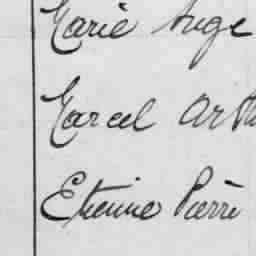 Marie Ange
Marcel Art
Etienne Pierre